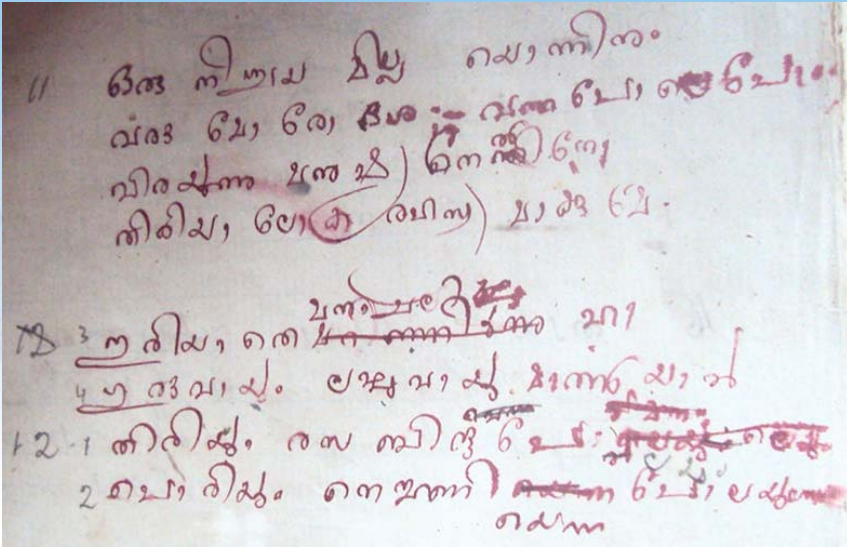 11 ഒരു നിശ്ചയ മില്ല യൊന്നിനും
വരു മോ രോ ദശ വന്ന പോ ലെ പോം
വിരയുന്നു മനുഷ്യ നേതിനോ
തിരിയാ ലോക രഹസ്യ മാർക്കു മേ.
മനം ചലി
3 ഇരിയാ തെ ഹാ
4 ഗുരുവായും ലഘുവായു മാർത്തിയാൽ
12 1 തിരിയും രസ ബിന്ദു പോ
2 പൊരിയും നെന്മണി പോലെയും
യെന്ന